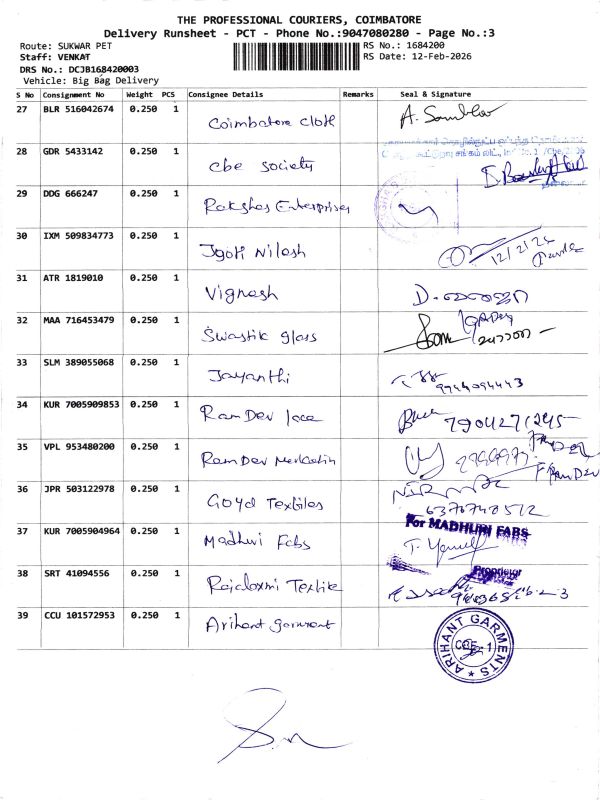 THE PROFESSIONAL COURIERS, COIMBATORE
Delivery Runsheet - PCT - Phone No.:9047080280 - Page No.:3
Route: SUKWAR PET
RS No.: 1684200
Staff: VENKAT
RS Date: 12-Feb-2026
DRS No.: DCJB168420003
Vehicle: Big Bag Delivery
S No Consignment No Weight PCS Consignee Details Remarks Seal & Signature
27 BLR 516042674 0.250 1 Coimbatore Cloth
28 GDR 5433142 0.250 1 cbe society
29 DDG 666247 0.250 1 Rakshas Enterprises
30 IXM 509834773 0.250 1 Jyoti Nilesh 12/2/26
31 ATR 1819010 0.250 1 Vignesh
32 MAA 716453479 0.250 1 Swastik glass
33 SLM 389055068 0.250 1 Jayanthi 9944094443
34 KUR 7005909853 0.250 1 RamDev lace
35 VPL 953480200 0.250 1 RamDev
36 JPR 503122978 0.250 1 Goyal Textiles
37 KUR 7005904964 0.250 1 Madhuri Fabs For MADHURI FABS
Proprietor
38 SRT 41094556 0.250 1 Rajalaxmi Textile
39 CCU 101572953 0.250 1 Arihant garment
ARIHANT GARMENTS
CBE - 1